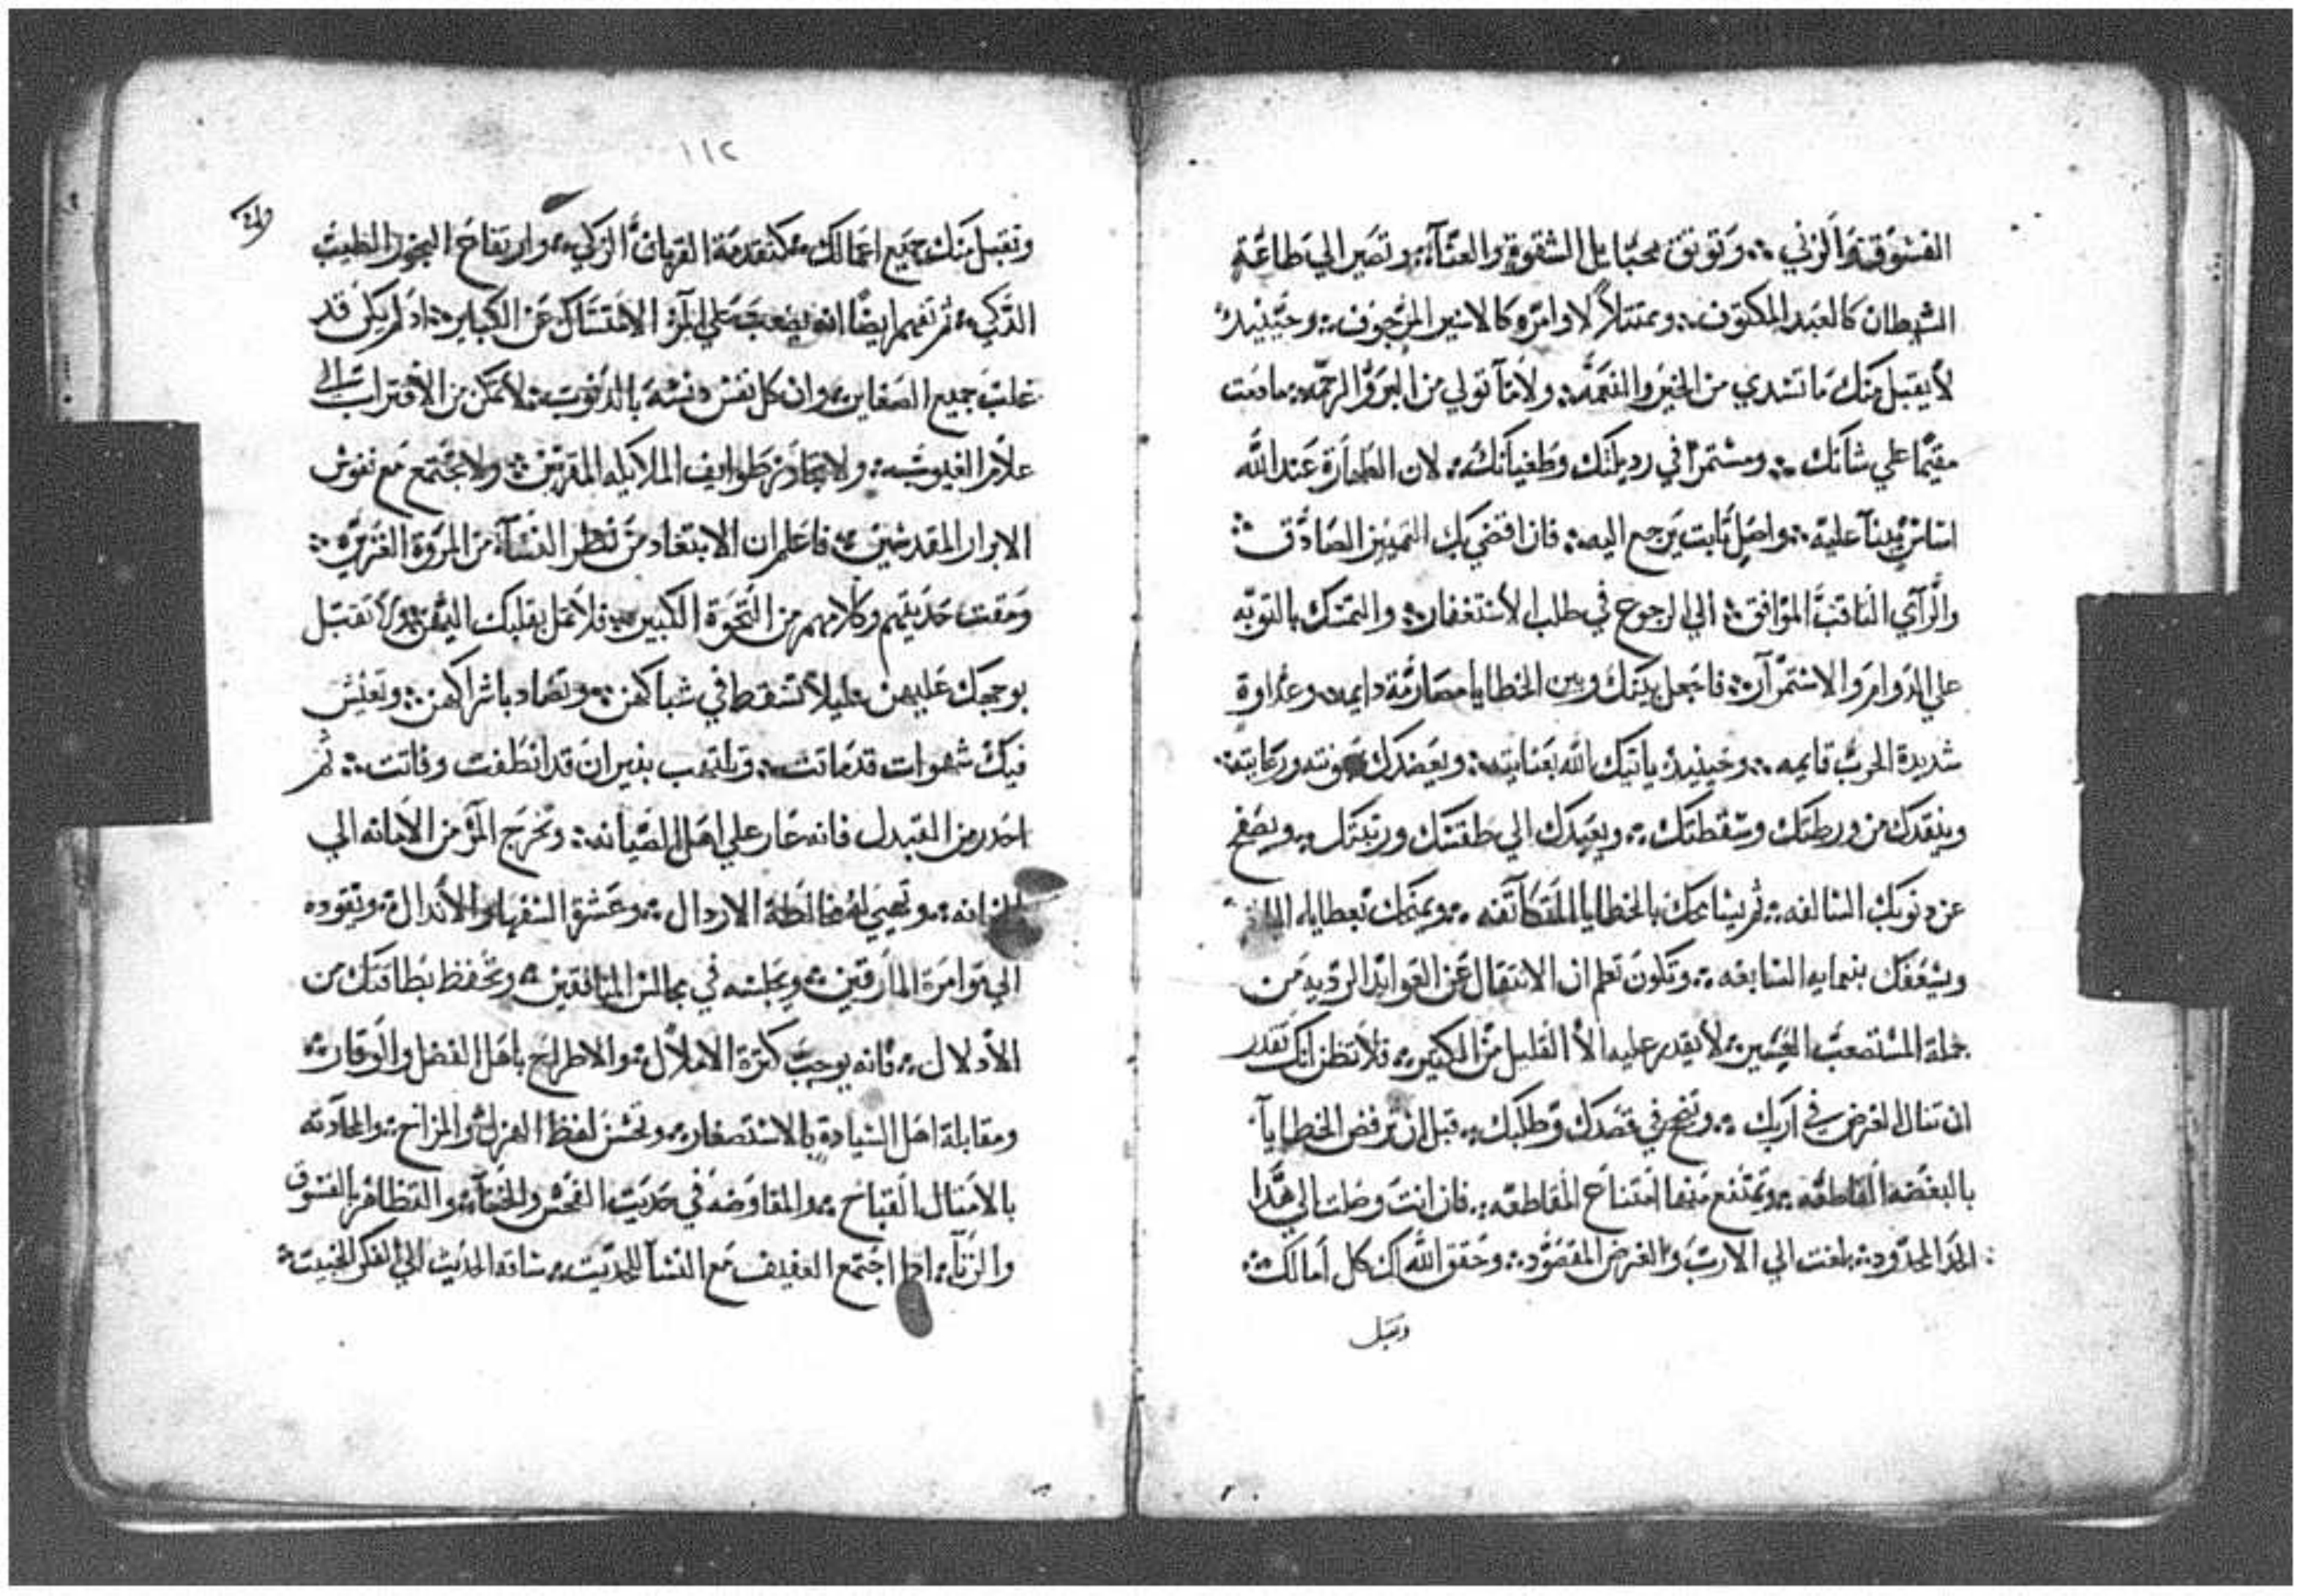 الفسوق والزني ∴ وتوثق بحبايل الشقوة والعنآء ∴ وتصير الي طاعة
الشيطان كالعبد المكتوف ∴ وممتثلاً لاوامره كالاسير المرجوف ∴ وحينيدٍ
لا يقبل منك ما تسدي من الخير والنعمه ∴ ولا ما تولي من البر والرحمه ∴ ما دمت
مقيمًا علي شانك ∴ ومستمرًا في رديلتك وطغيانك ∴ لان الطهارة عند الله
اساسٌ يبنآ عليه ∴ واصل ثابت يرجع اليه ∴ فان افضي بك التمييز الصادق ∴
والرآي الثاقب الموافق ∴ الي الرجوع في طلب الاستغفار ∴ والتمسك بالتوبه
علي الدوام والاستمرآر ∴ فاجعل بينك وبين الخطايا مصارمة دايمه وعداوة
شديدة الحرب قايمه ∴ وحينيدٍ ياتيك الله بعنايته ∴ ويعضدك بمعونته ورعايته ∴
وينقدك من ورطتك وسقطتك ∴ ويعيدك الي طقسك ورتبتك ∴ ويصفح
عن دنوبك السالفه ∴ ثم يسامحك بالخطايا ∴ ويمنحك بعطاياه
ويسعفك بنعمايه السابغه ∴ وتكون تعلم ان الانتقال عن العوايد الرديه من
جملة المستصعب العسير ∴ لا يقدر عليه الا القليل من الكثير ∴ فلا تظن انك تقدر
ان تنال الغرض في اربك ∴ وتنجح في قصدك وطلبك ∴ قبل ان ترفض الخطايآ
بالبغضه القاطعه ∴ وتمتنع منها امتناع المقاطعه ∴ فان انت وصلت الي هدا
الحد المحدود ∴ بلغت الي الارب والغرض المقصود ∴ وحقق الله لك كل امالك ∴
وتقبل
١١٢
وتقبل منك جميع اعمالك ∴ كتقدمة القربان الزكي ∴ وارتفاع البخور الطيب
الدكي ∴ ثم تفهم ايضًا انه يصعب علي المرء الامتساك عن الكباير ∴ اد لم يكن قد
غلب جميع الصغاير ∴ وان كل نفس دنسه بالدنوب ∴ لا تمكن من الاقتراب الي
علام الغيوب ∴ ولا تجاور طوايف الملايكه المقربين ∴ ولا تجتمع مع نفوس
الابرار المقدسين ∴ فاعلم ان الابتعاد من نظر النسآء من المروة الغزيره ∴
ومقت حديثهم وكلامهم من النخوة الكبيره ∴ فلا تمل بقلبك اليهن ∴ ولا تقبل
بوجهك عليهن ∴ ليلا تسقط في شباكهن ∴ وتصاد باشراكهن ∴ وتعيش
فيك شهوات قد ماتت ∴ وتلتهب نيران قد انطفت وفاتت ∴ ثم
احدر من التبدل فانه عار علي اهل الصيانه ∴ وتخرج المرء من الامانه الي
الخيانه ∴ وتهيي له مخالطة الاردال ∴ وعشرة السفهاء والاندال ∴ وتقوده
الي موامرة المارقين ∴ وتجلسه في مجالس المنافقين ∴ وتحفظ بطاقتك من
الادلال ∴ فانه يوجب كثرة الاملال ∴ والاطراح باهل الفضل والوقار ∴
ومقابلة اهل السيادة بالاستصغار ∴ وتحسن لفظ الهزل والمزاح ∴ والمحادثه
بالامثال القباح ∴ والمفاوضه في حديث الفحش والخنآء ∴ والتظاهر بالفسوق
والزنآء ∴ ادا اجتمع العفيف مع النسآ للحديث ∴ ساقه الحديث الي الفكر الخبيث ∴